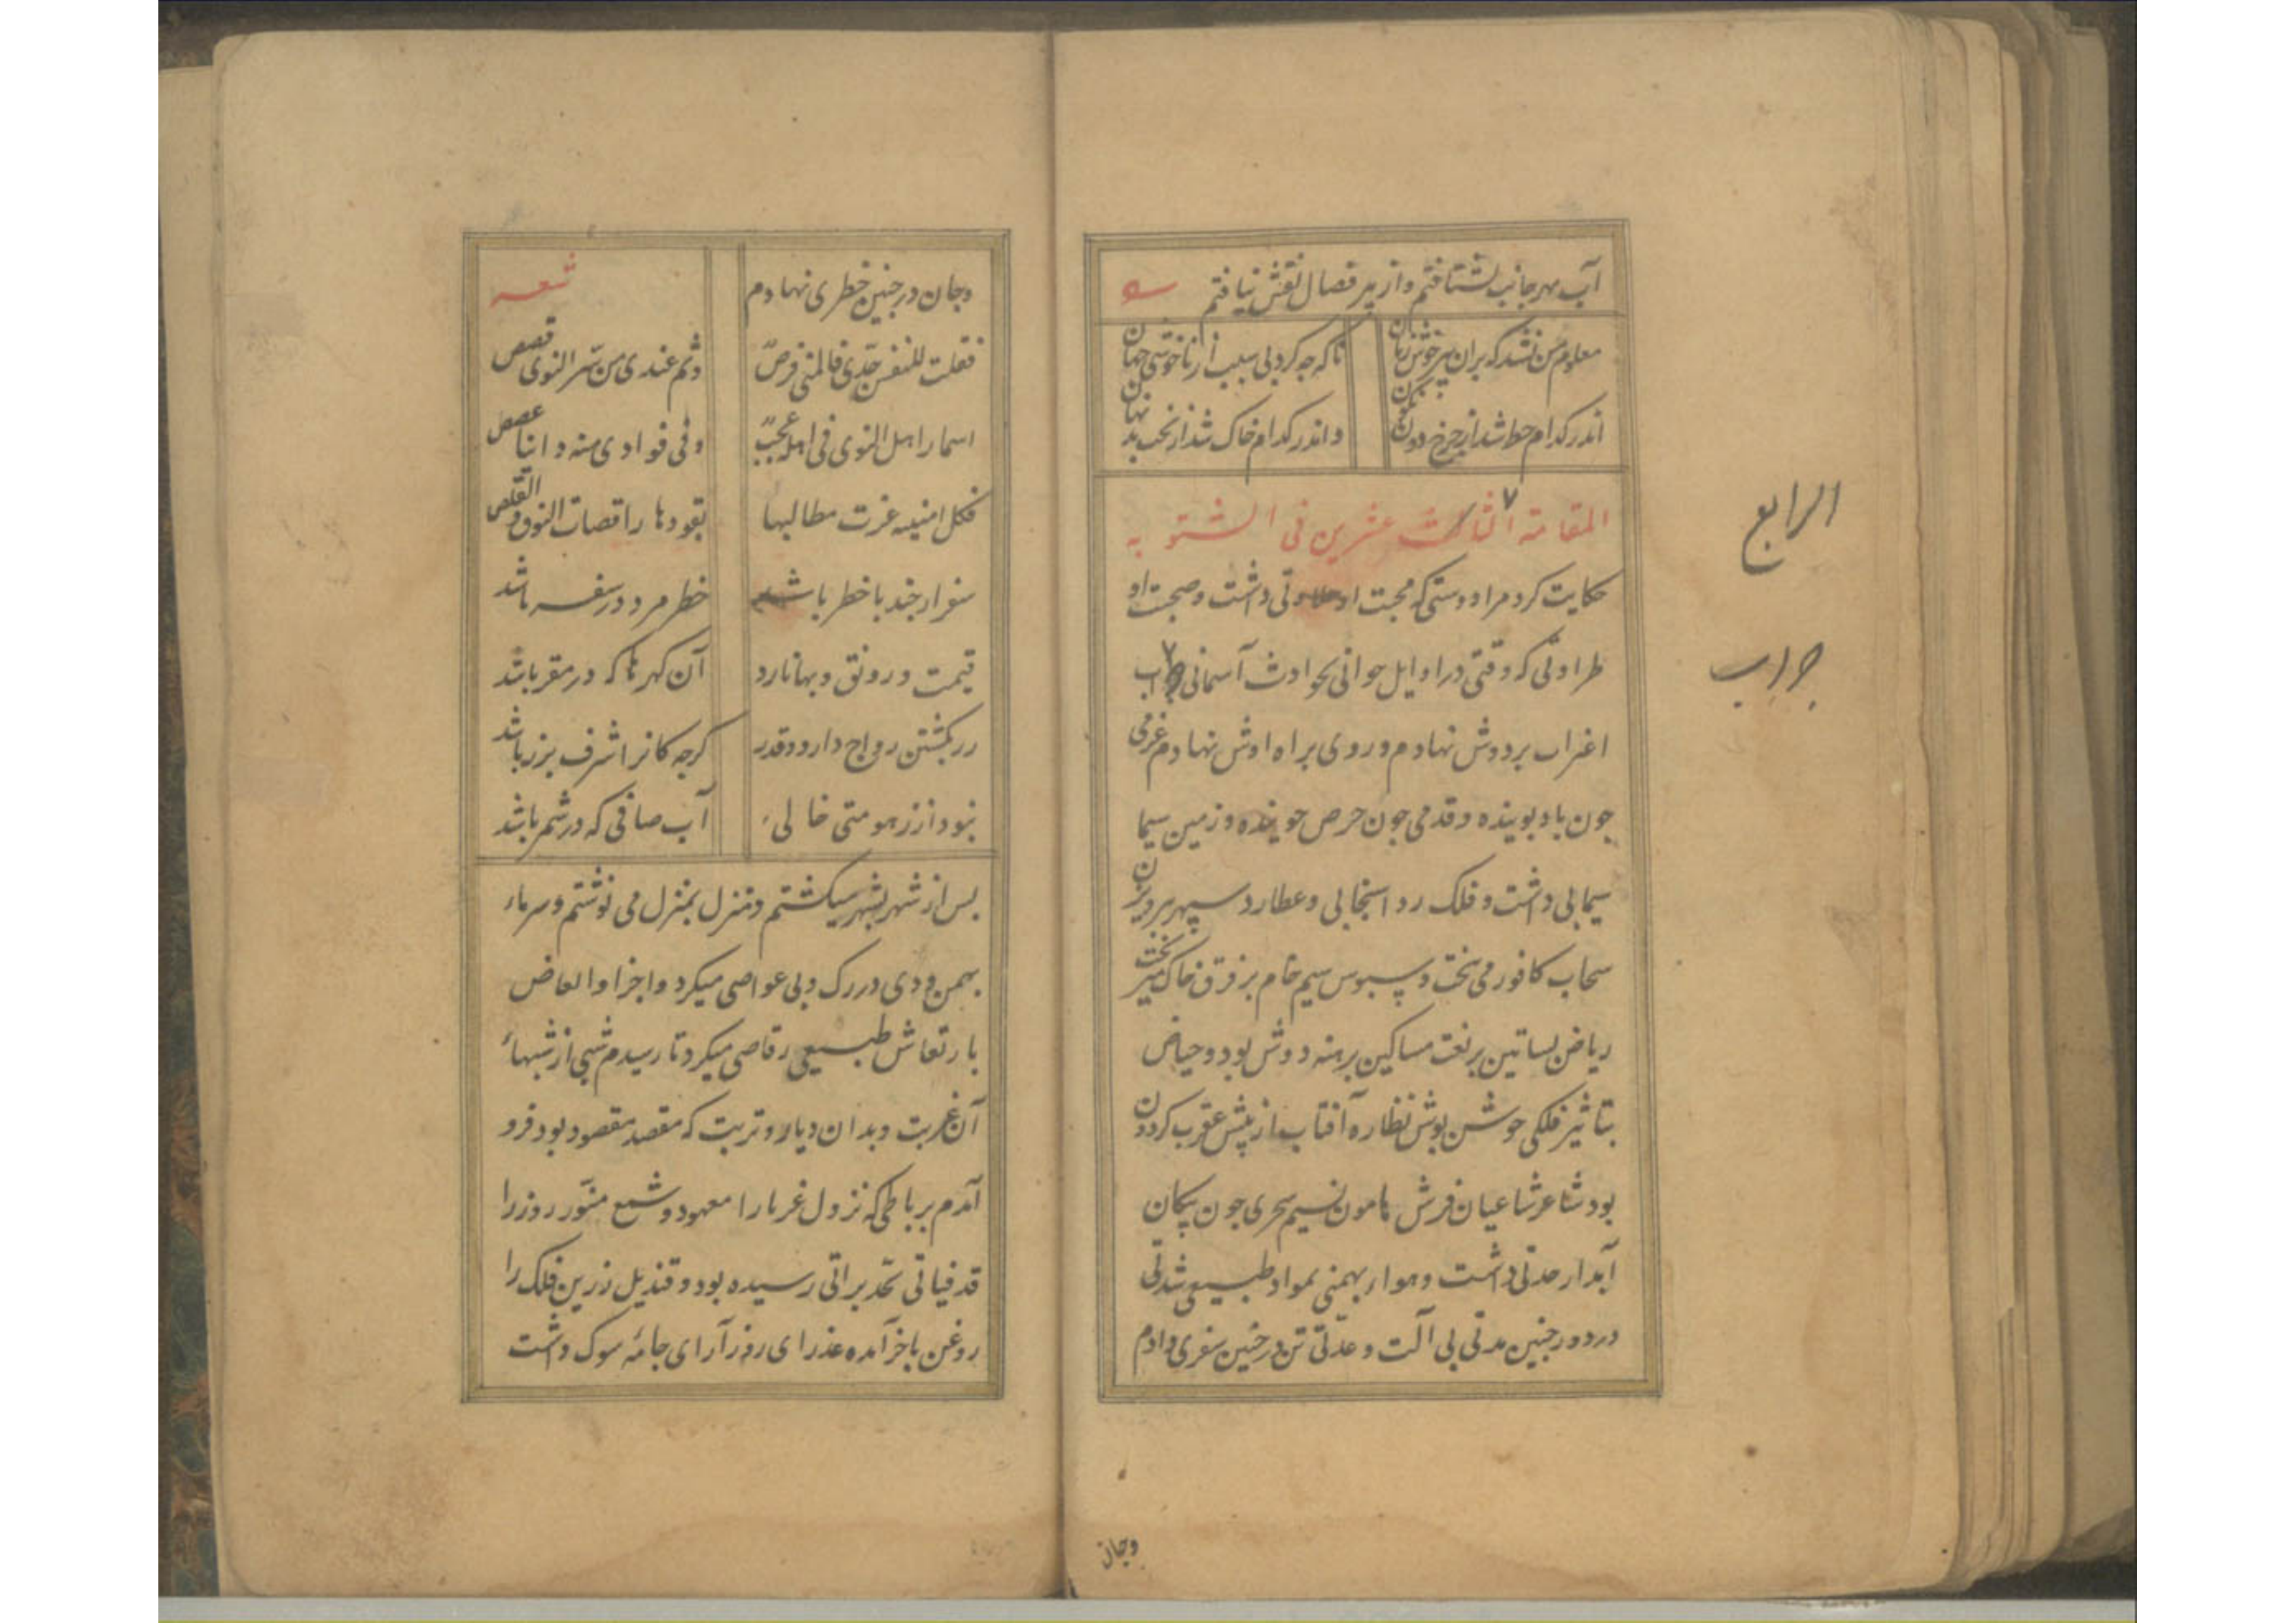 آب بهر جانب بشتافتم و از پیر قصال نقش نیافتم
معلوم من نشد که بران پیر خوش زبان
تا که جه کرد بی سبب از ناخوشی جهان
اندر کدام حط شد از جرخ دون نکون
و اندر کدام خاک شد از نحب بد نهان
المقامة الثالث عشرین فی الشتویه
حکایت کرد مرا دوستی که محبت او حلاوتی داشت و صحبت او
طراوتی که وقتی در اوایل جوانی بحوادث آسمانی
اغتراب بر دوش نهادم و روی براه اوش نهادم عزمی
جون باد بوینده و قدمی جون حرص جوینده و زمین سیما
سیمابی داشت و فلک ردا سنجابی و عطارد سپهر پرویزن
سحاب کافور می بیخت و سبوس سیم خام بر فرق خاک میریخت
ریاض بساتین بر نعت مساکین برهنه دوش بود و حیاض
بتاثیر فلکی جوشن بوش نظاره آفتاب از پیش عقرب کردون
بود شاعر شاعیان فرش هامون نسیم سحری جون پیکان
آبدار حدتی داشت و هواء بهمنی بمواد طبیعی شدتی
در دور جنین مدتی بی آلت و عدتی تن در جنین سفری دادم
الرابع
جراب
وجان
و جان در جنین خطری نهادم
شعر
فقلت للنفس جدی فالمنی فرص
وثم عندی من سر النوی قصص
اسمار اهل النوی فی اهله عجب
وفی فوادی منه و انا غصص
فکل امنیه عزت مطالبها
تقودها راقصات النوق والقلص
سفر ار جند با خطر باشد
خطر مرد در سفر باشد
قیمت و رونق و بها نارد
آن کهرها که در مقر باشد
زر بکشتن رواج دارد و قدر
کرجه کانرا شرف بزر باشد
نبود از زهومتی خالی
آب صافی که در شمر باشد
بس از شهر بشهر میکشتم و منزل بمنزل می نوشتم و سرماء
بهمن و دی در رک و پی غواصی میکرد و اجزا و ابعاض
بارتعاش طبیعی رقاصی میکرد تا رسیدم شبی از شبهاء
آن غربت و بدان دیار و تربت که مقصد مقصود بود فرو
آمدم برباطی که نزول غربا را معهود و شمع منور روز را
قد فیاتی بحد براتی رسیده بود و قندیل زرین فلک را
روغن باخر آمده عذرای روز آرای جامه سوک داشت